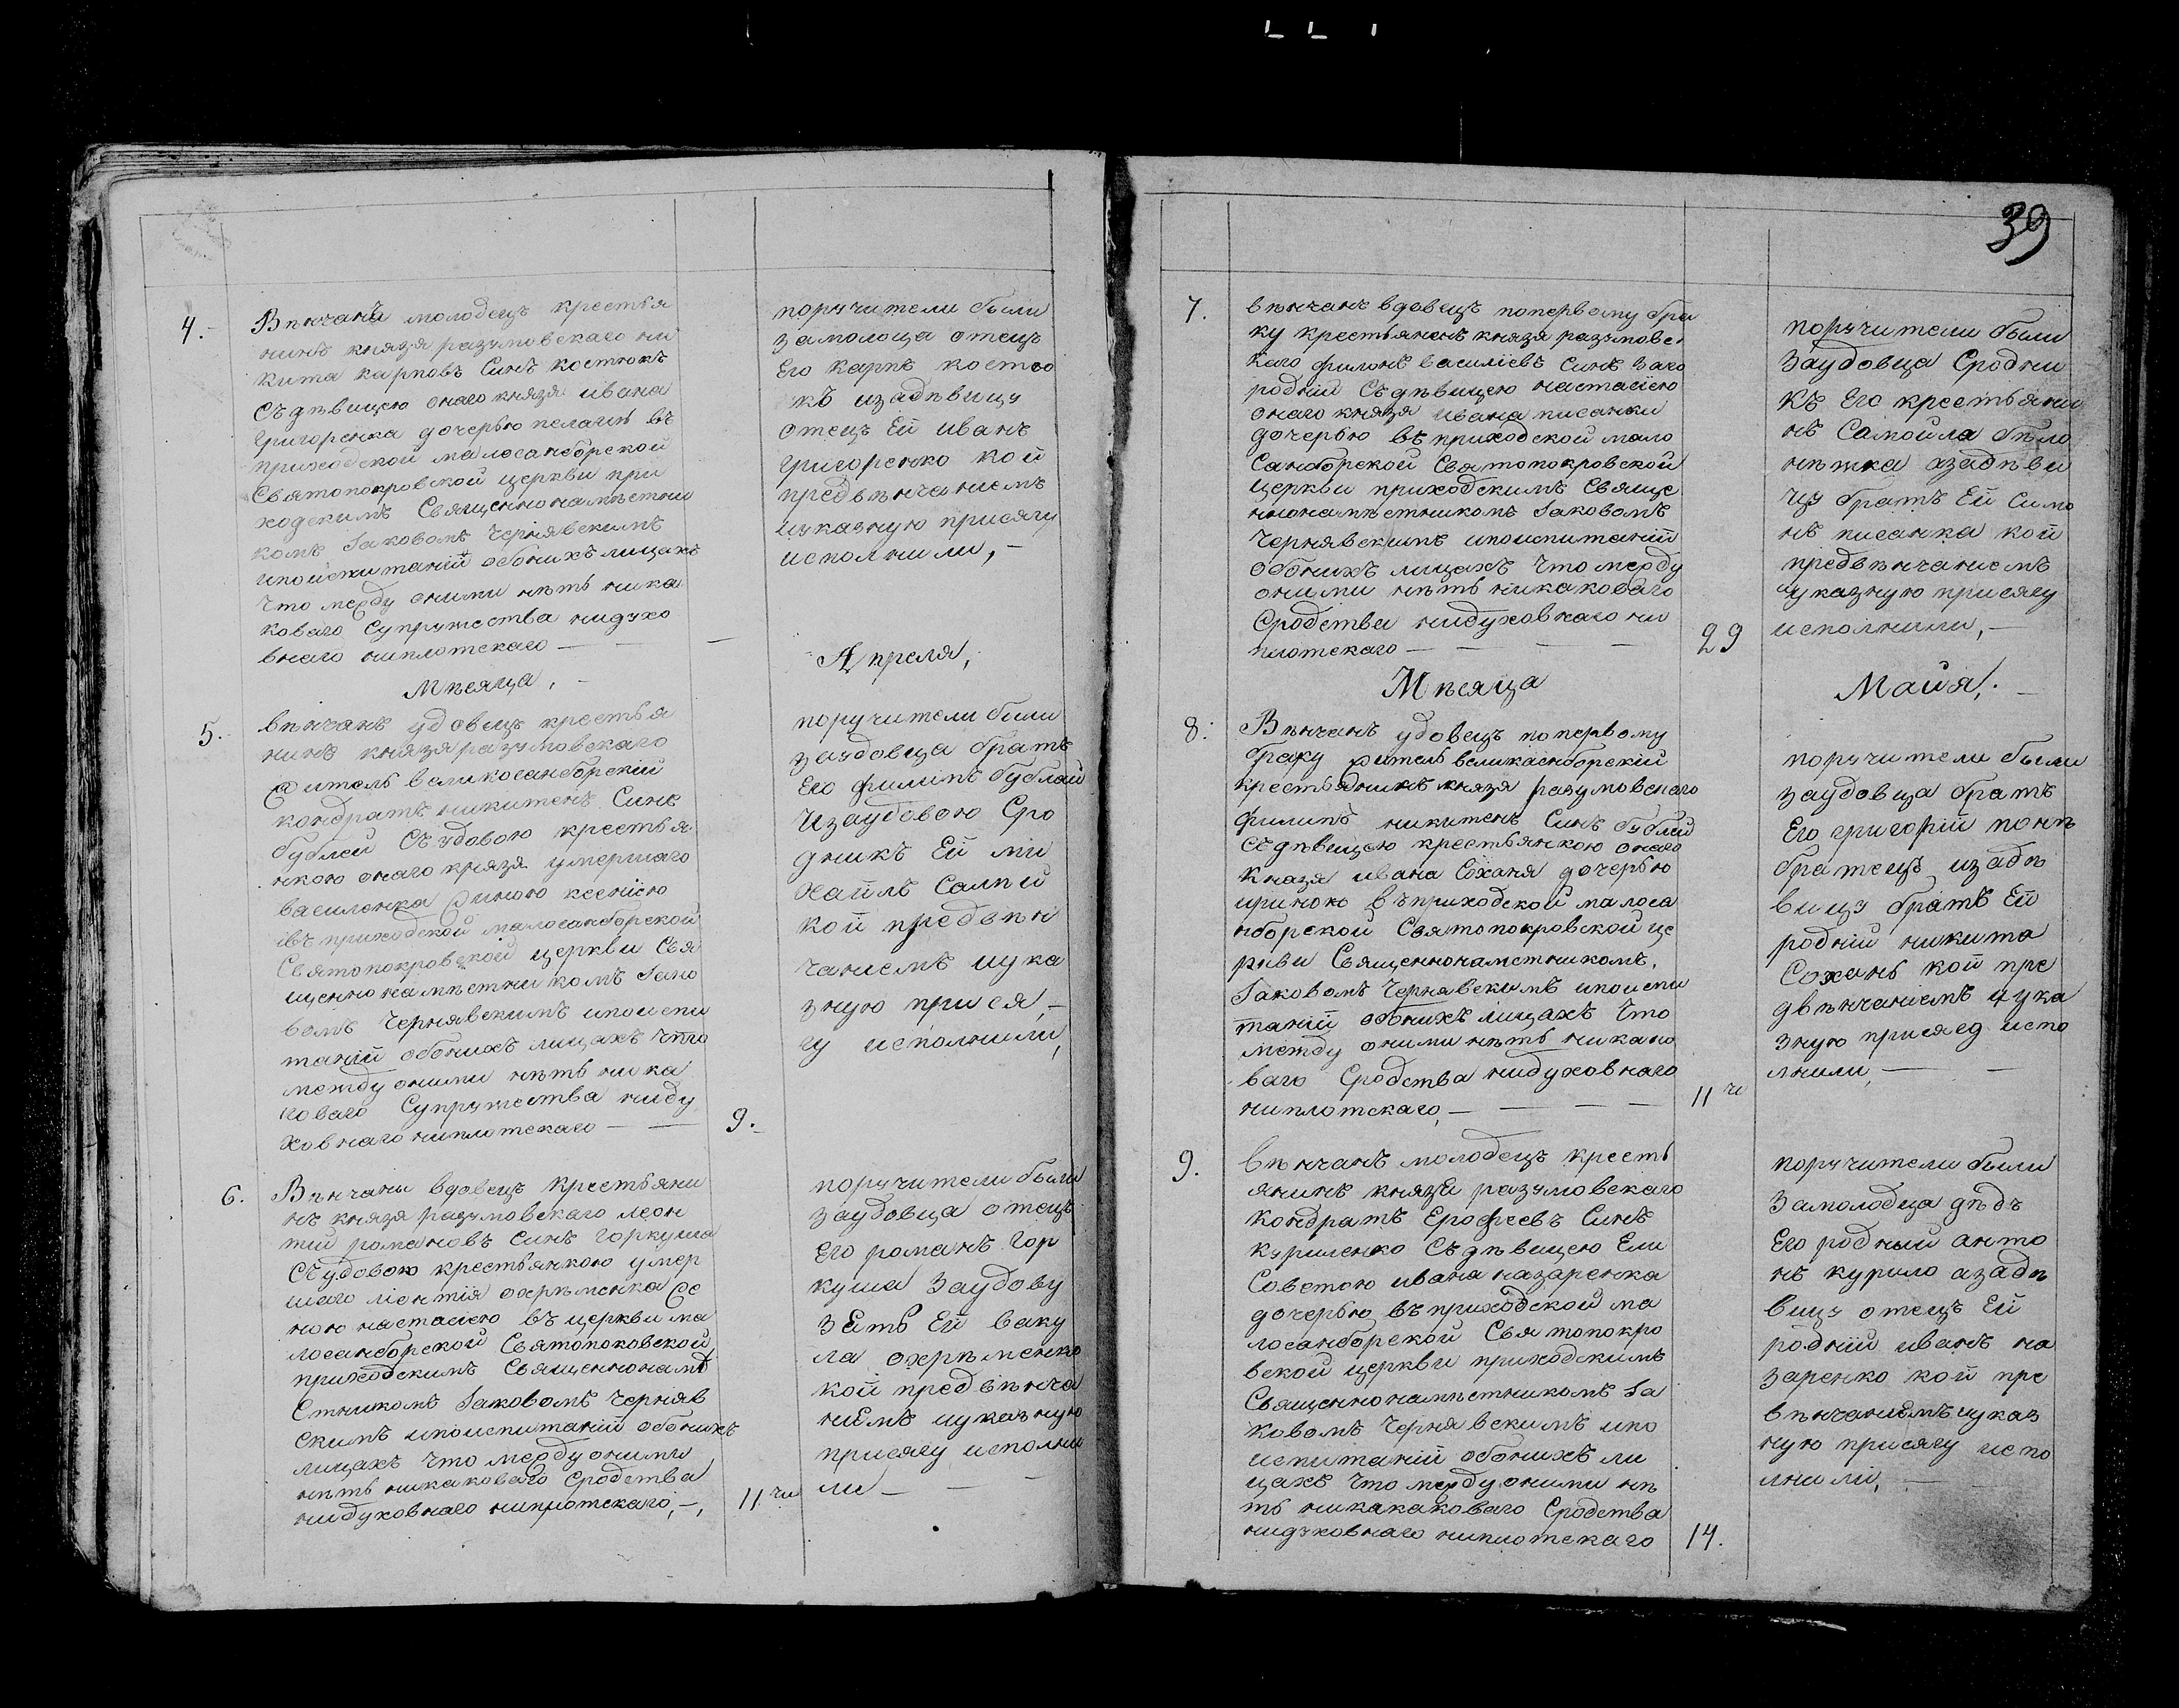 39
4.
Вѣнчанъ молодецъ крестья
нинъ князя разумовскаго ни
кита карповъ Синъ костюкъ
Съ дѣвицею онаго князя ивана
григоренка дочерью пелагиѣ въ
приходской малосамборской
Святопокровской церкви при
ходскимъ Священнонамѣстни
комъ Іаковомъ Чернявскимъ
ипоиспитаній обоихъ лицахъ
Что между оними нѣтъ ника
коваго Супружества нидухо
внаго ниплотскаго —
поручители были
замолодца отецъ
Его карпъ костю
къ изадѣвицу
отецъ Ей иванъ
григоренко кой
предвѣнчаниемъ
иуказную присягу
исполнили, —
Мѣсяца, —
Апреля,
5.
вѣнчанъ удовецъ крестья
нинъ князя разумовскаго
житель великосамборскій
кондратъ никитенъ Синъ
бублей Съ удовою крестья
нкою онаго князя умершаго
василенка женою ксениею
въ приходской малосамборской
Святопокровской церкви Свя
щеннонамѣстникомъ Іако
вомъ Чернявскимъ ипоиспи
таній обоихъ лицахъ что
между оними нѣтъ ника
коваго Супружества ниду
ховнаго ниплотскаго — —
9.
поручители были
заудовца братъ
Его филипъ бублей
Изаудовою Сро
дникъ Ей ми
хайлъ Салтій
кой предвѣн
чаниемъ иука
зную прися —
гу исполнили,
6.
Вѣнчаны вдовецъ крестьяни
нъ князя разумовскаго леон
тій романовъ синъ горкуша
Съ удовою крестьянкою умер
шаго ліонтія охрѣменка же
ною настасіею въ церкви ма
лосамборской Святопоковской
приходскимъ Священнонамѣ
Стникомъ Іаковомъ Черняв
скимъ ипоиспитаній обоихъ
лицахъ что между оними
нѣтъ никаковаго Сродства
нидуховнаго ниплотскаго, —,
11 чи
поручители были
заудовца отецъ
Его романъ гор
куша Заудову
зятъ Ей ваку
ла охрѣменко
кой предвѣнча
ниемъ иуказную
присягу исполни
ли — —
7.
вѣнчанъ вдовецъ поперьвому бра
ку крестьянинъ князя разумовс
каго филонъ василіевъ Синъ заго
родній Съ дѣвицею настасіею
онаго князя ивана писанки
дочерью въ приходской мало
Самборской Святопокровской
церкви приходскимъ Свяще
ннонамѣстникомъ Іаковомъ
Чернявскимъ ипоиспитаній
обоихъ лицахъ Что между
оними нѣтъ никаковаго
Сродства нидуховнаго ни
плотскаго — — — —
29
поручители были
Заудовца Сродни
къ Его крестьяни
нъ Самойла бѣло
нѣжка азадѣви
цу братъ Ей Симо
нъ писанка кой
предвѣнчаниемъ
иуказную присягу
исполнили, —
Мѣсяца
Майя,. —
8.
Вѣнчанъ удовецъ поперьвому
браку житель великасамборскій
крестьянинъ князя разумовскаго
филипъ никитенъ Синъ бублей
Съ дѣвицею крестьянкою онаго
князя ивана Соханя дочерью
ириною въ приходской малоса
мборской Святопокровской це
ркви Священнонаместникомъ.
Іаковомъ Чернявскимъ ипоиспи
таній обоихъ лицахъ Что
между оними нѣтъ никако
ваго Сродства нидуховнаго
ниплотскаго, — — — —
11 чи
поручители были
заудовца братъ
Его григорій понѣ
братецъ изадѣ
вицу братъ Ей
родній никита
Сохань кой пре
двѣнчаніемъ иука
зную присягу испо
лнили, — —
9.
Вѣнчанъ молодецъ кресть
янинъ князя разумовскаго
кондратъ Ерофеевъ Синъ
куриленко Съ дѣвицею Ели
Саветою ивана назаренка
дочерью въ приходской ма
лосамборской Святопокро
вской церкви приходскимъ
Священнонамѣстникомъ Іа
ковомъ Чернявскимъ ипо
испитаній обоихъ ли
цахъ Что между оними нѣ
тъ никакаковаго Сродства
нидуховнаго ниплотскаго
14.
поручители были
Замолодца дѣдъ
Его родный анто
нъ курило азадѣ
вицу отецъ Ей
родній иванъ на
заренко кой пре
вѣнчаниемъ иуказ
ную присягу испо
лнилі, —